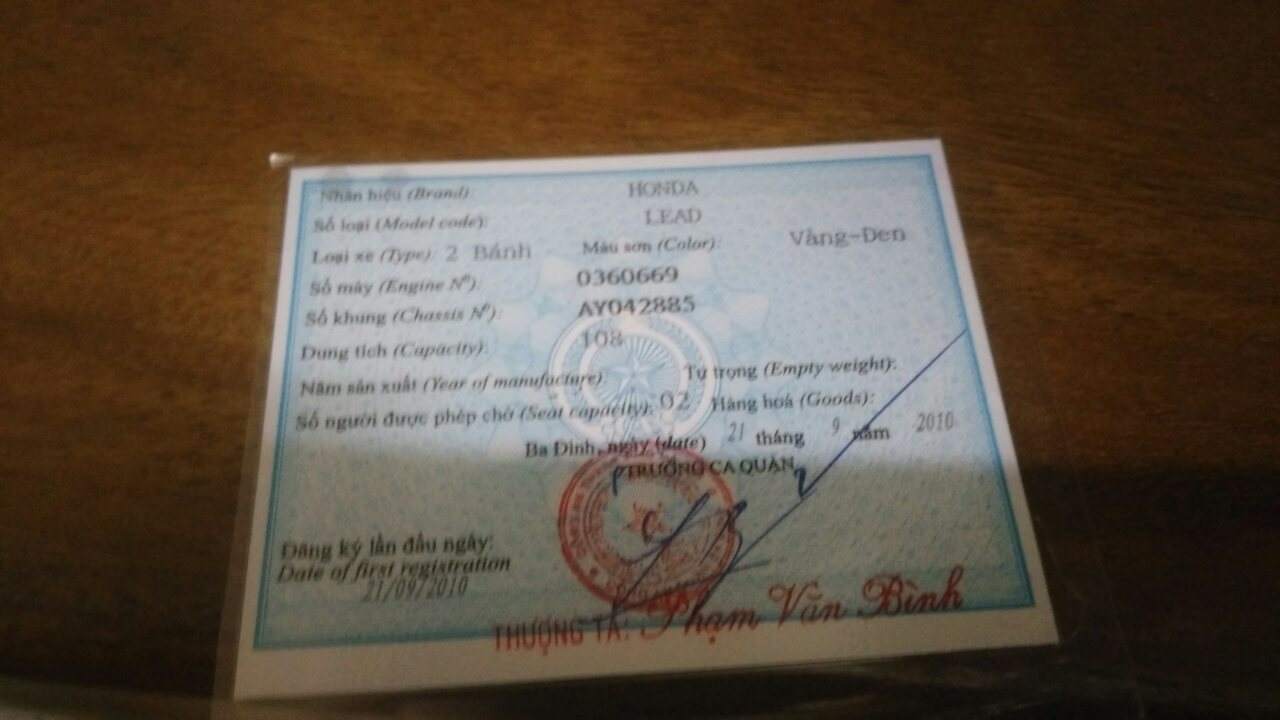 Nhãn hiệu (Brand): HONDA
Số loại (Model code): LEAD
Loại xe (Type): 2 Bánh Màu sơn (Color): Vàng-Đen
Số máy (Engine Nº): 0360669
Số khung (Chassis Nº): AY042885
Dung tích (Capacity): 108
Năm sản xuất (Year of manufacture): Tự trọng (Empty weight):
Số người được phép chở (Seat capacity): 02 Hàng hoá (Goods):
Ba Đình, ngày (date) 21 tháng 9 năm 2010
P TRƯỞNG CA QUẬN
Đăng ký lần đầu ngày:
Date of first registration
21/09/2010
THƯỢNG TÁ: Phạm Văn Bình